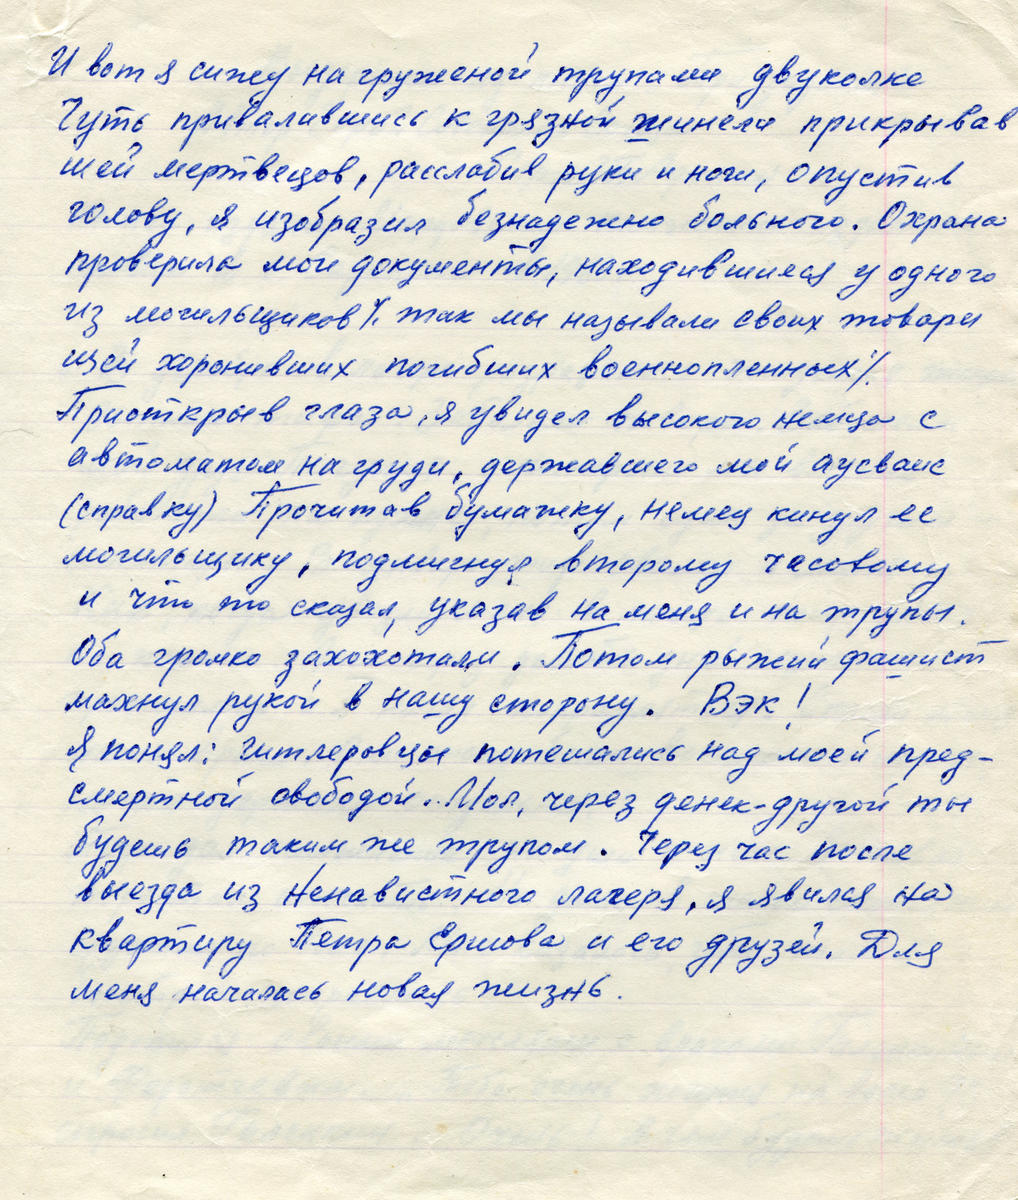 И вот я сижу на груженой трупами двуколке
Чуть привалившись к грязной шинели прикрывав
шей мертвецов, расслабив руки и ноги, опустив
голову, я изобразил безнадежно больного. Охрана
проверила мои документы, находившиеся у одного
из могильщиков /. так мы называли своих товари
щей хоронивших погибших военнопленных /.
Приоткрыв глаза, я увидел высокого немца с
автоматом на груди, державшего мой аусвайс
(справку) Прочитав бумажку, немец кинул ее
могильщику, подмигнул второму часовому
и что то сказал, указав на меня и на трупы.
Оба громко захохотали. Потом рыжий фашист
махнул рукой в нашу сторону. Вэк!
Я понял: гитлеровцы потешались над моей пред-
смертной свободой. Мол, через денек-другой ты
будешь таким же трупом. Через час после
выезда из ненавистного лагеря, я явился на
квартиру Петра Ершова и его друзей. Для
меня началась новая жизнь.